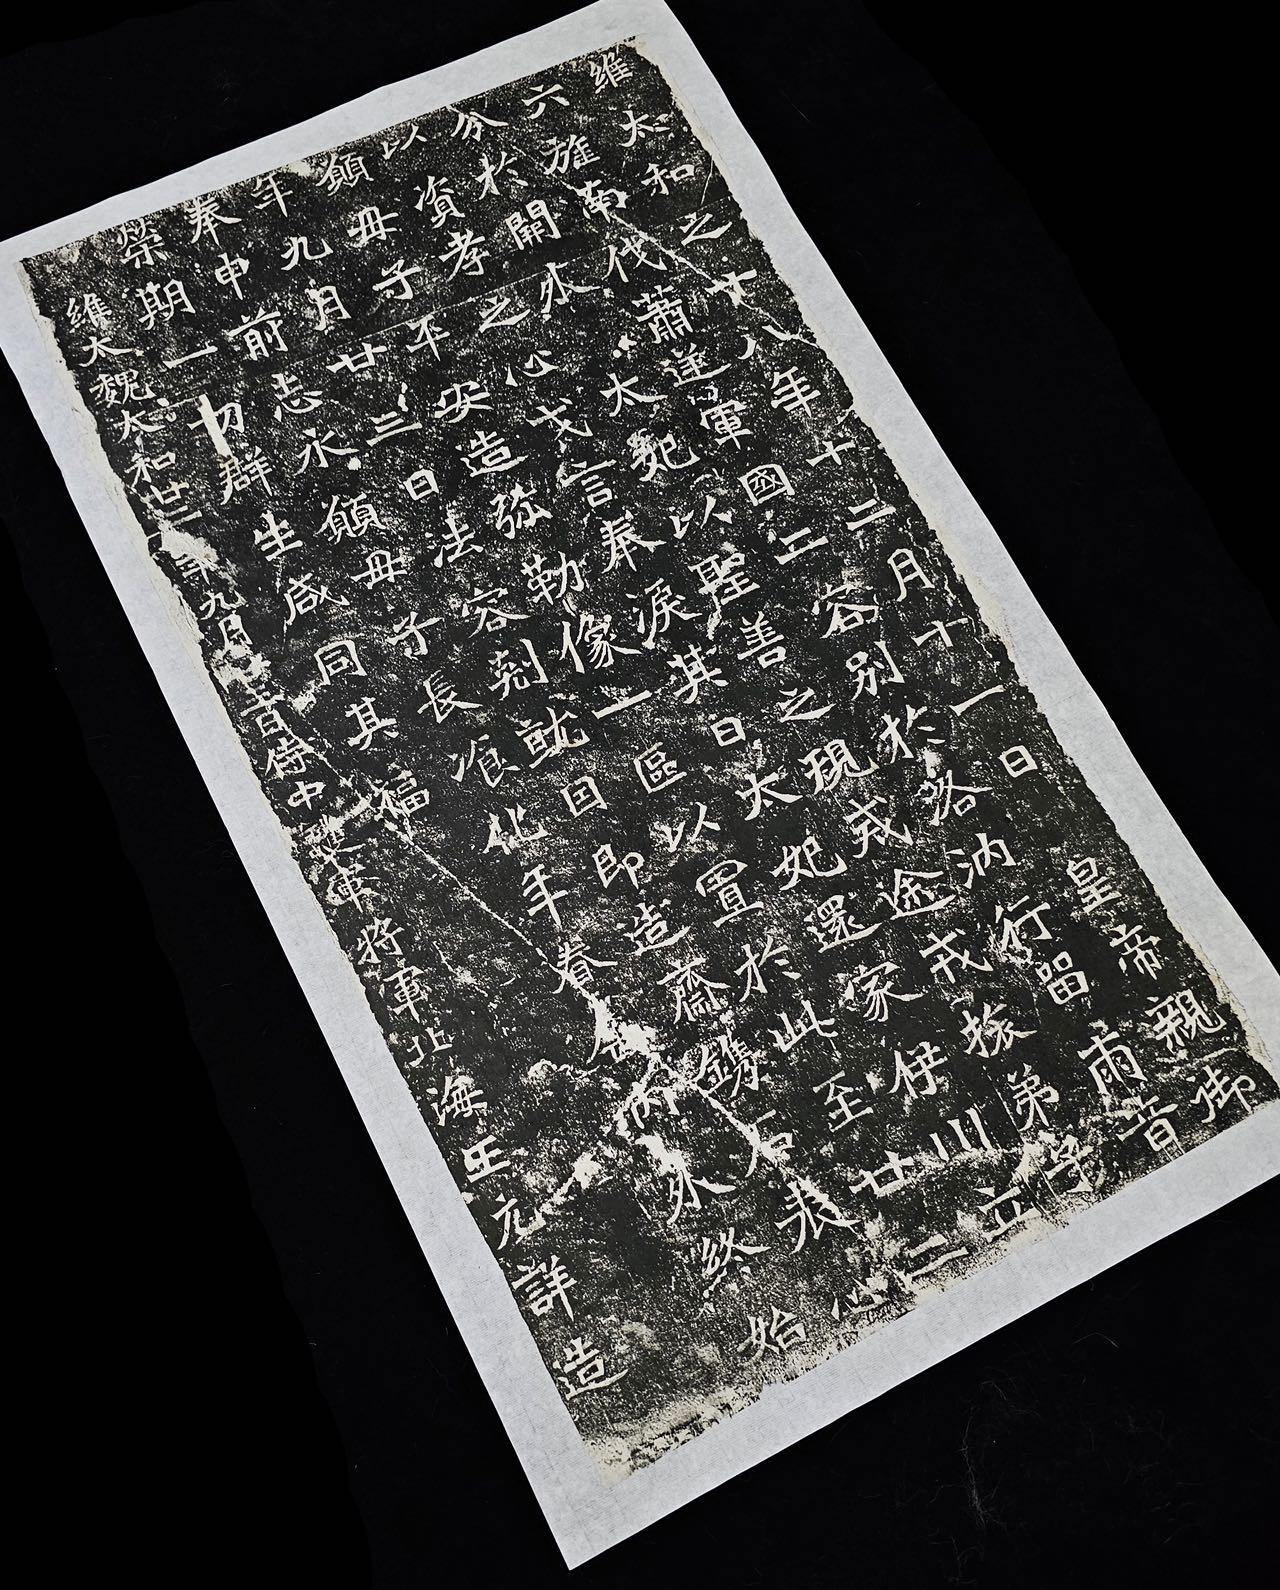 維太和之十八年十二月十一日皇帝親御
六旌南伐蕭逆軍國二容別於洛汭行留兩音
分於關外太妃以聖善之規戒途戎旅弟子
以資孝之心戈言奉淚其日太妃還家伊川立
願母子平安造弥勒像一區以置於此至廿二
年九月廿三日法容剋就因即造齋鐫石表心
奉申前志永願母子長飡化年眷屬內外終始
榮期一切群生咸同其福
維大魏太和廿二年九月廿三日侍中護軍將軍北海王元詳造